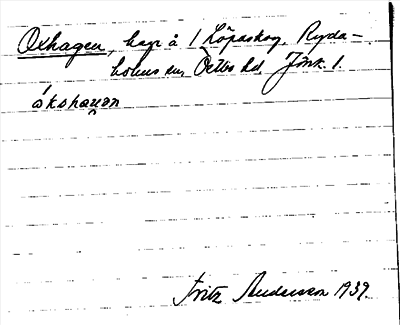 Oxhagen, hage å 1 Löpaskog, Ryda-
holms sn, Östbo hd, Jönk. l.
åkshaugn
Fritz Andersson 1939.